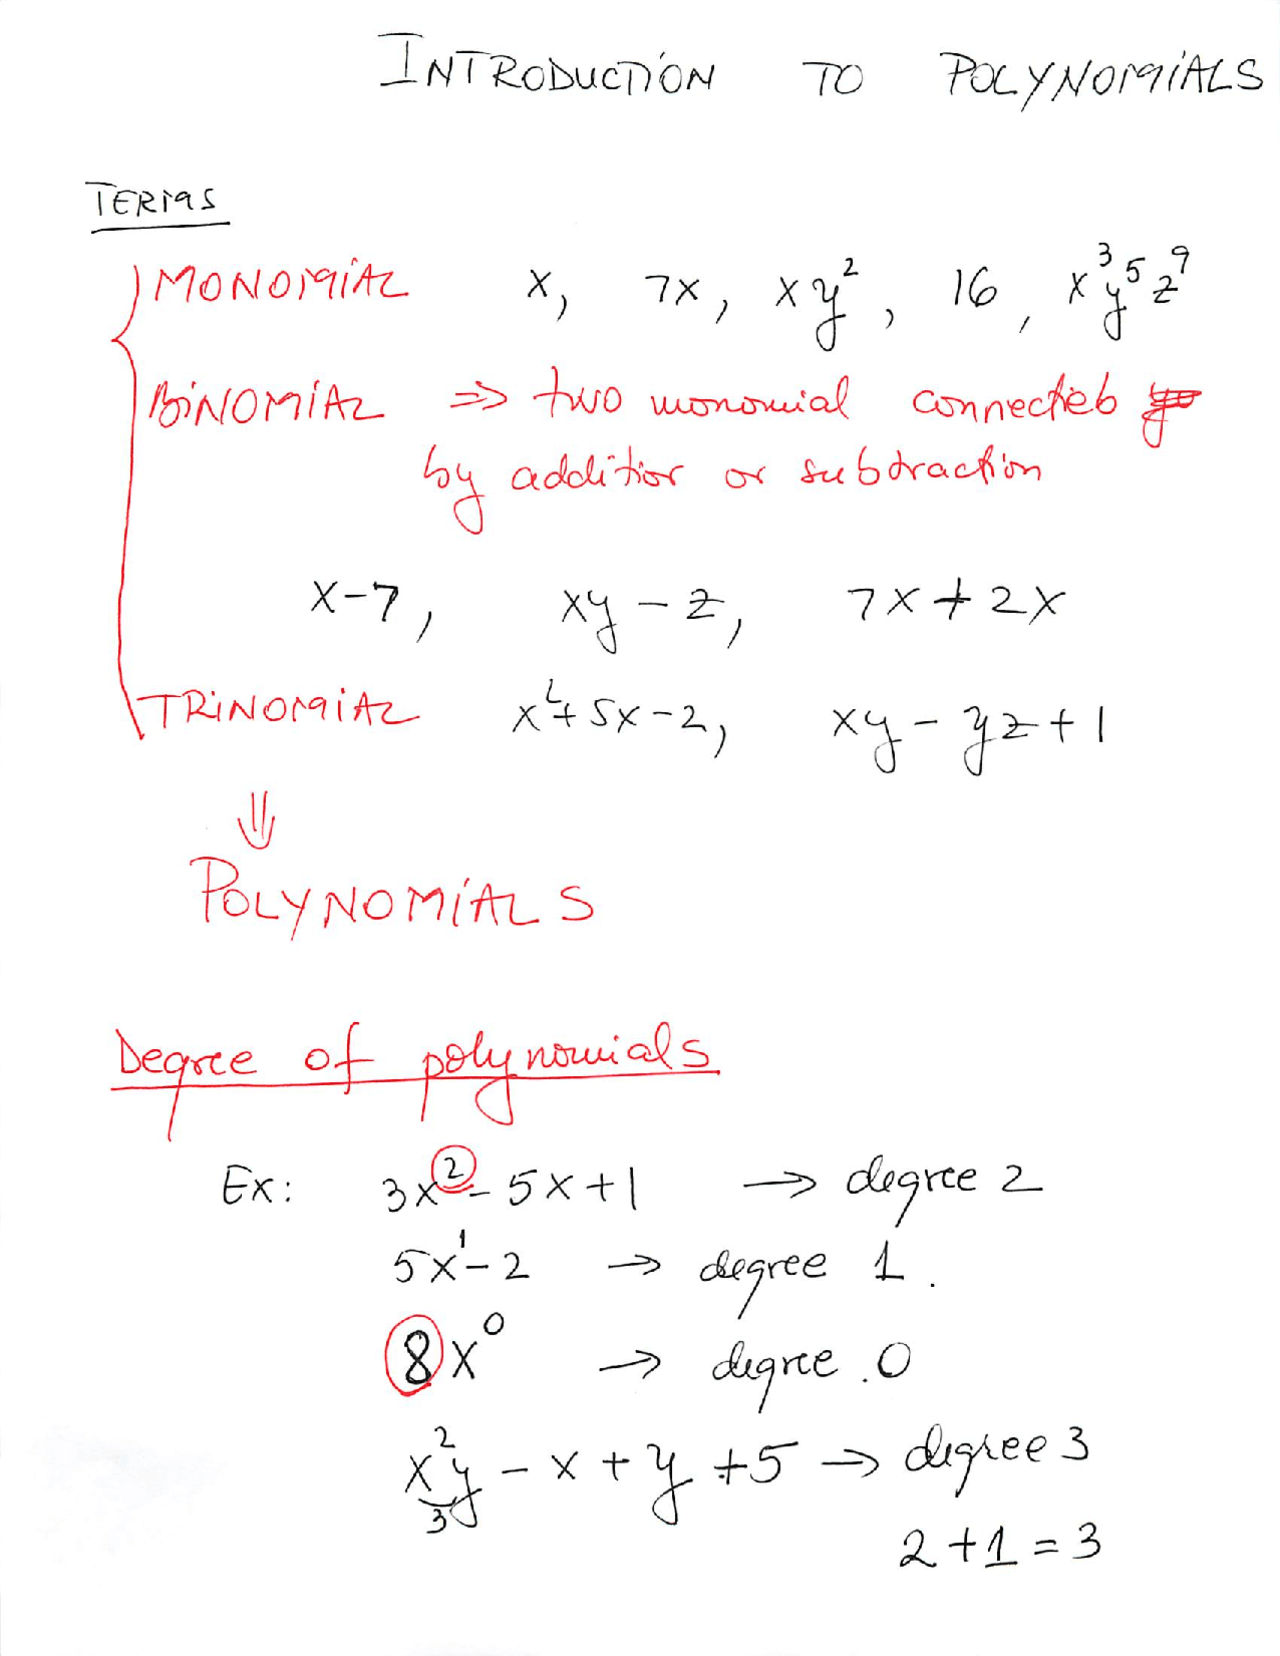 INTRODUCTION TO POLYNOMIALS
TERMS
MONOMIAL x, 7x, xy², 16, x³y⁵z⁹
BINOMIAL ⇒ two monomial connected
by addition or subtraction
x-7, xy - z, 7x + 2x
TRINOMIAL x²+5x-2, xy - yz + 1
⇓
POLYNOMIALS
Degree of polynomials
Ex: 3x² - 5x + 1 → degree 2
5x¹ - 2 → degree 1.
8x⁰ → degree .0
x²y - x + y + 5 → degree 3
3
2 + 1 = 3